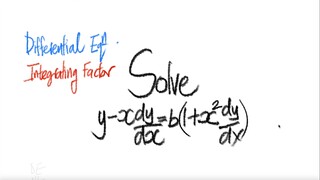 Differential Eqⁿ
Integrating Factor
Solve
y-x dy/dx = b(1+x² dy/dx)